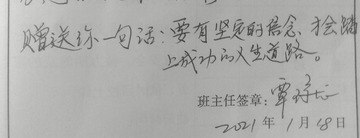 赠送你一句话：要有坚定的信念，才会踏
上成功的人生道路。
班主任签章：覃
2021年1月18日